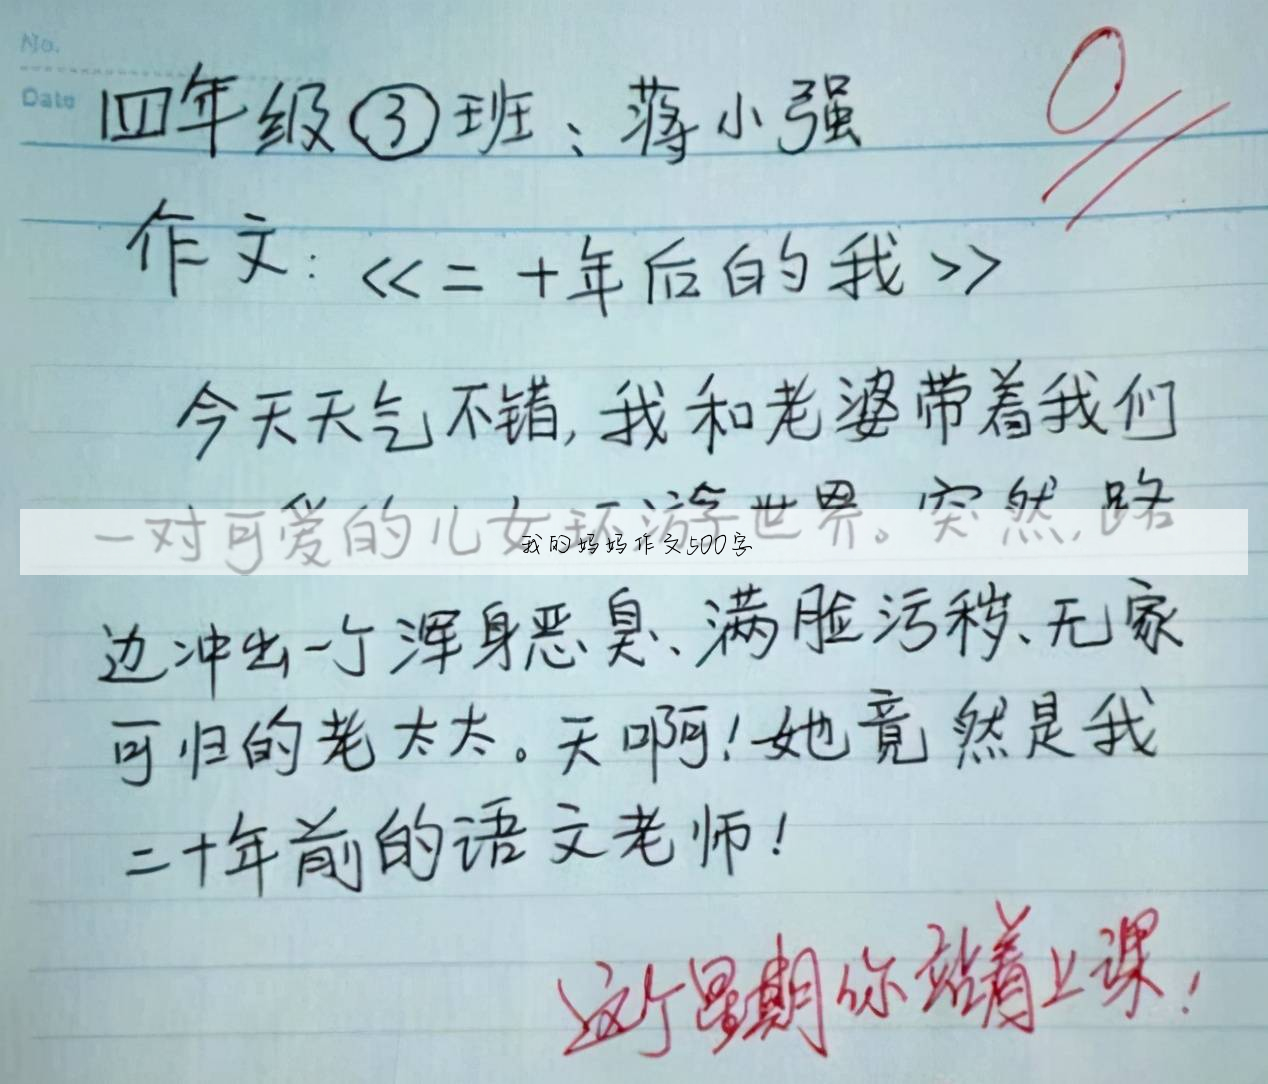 No.
Date
四年级③班、蒋小强
0
作文：<<二十年后的我>>
今天天气不错，我和老婆带着我们
一对可爱的儿女环游世界。突然，路
我的妈妈作文500字
边冲出一个浑身恶臭、满脸污秽、无家
可归的老太太。天啊！她竟然是我
二十年前的语文老师！
这个星期你站着上课！